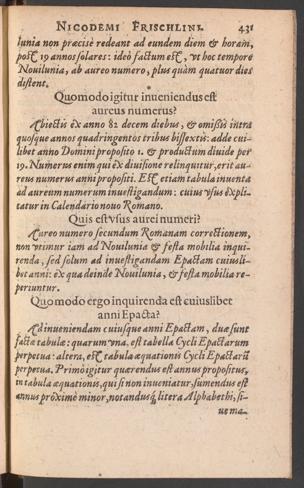 NICODEMI FRISCHLINI. 431
lunia non præcisè redeant ad eundem diem & horam,
post 19 annos solares: ideò factum est, vt hoc tempore
Nouilunia, ab aureo numero, plus quàm quatuor dies
distent.
Quomodo igitur inueniendus est
aureus numerus?
Abiectis ex anno 82 decem diebus, & omissis intra
quosque annos quadringentos tribus bissextis: adde cui-
libet anno Domini proposito 1. & productum diuide per
19. Numerus enim qui ex diuisione relinquitur, erit au-
reus numerus anni propositi. Est etiam tabula inuenta
ad aureum numerum inuestigandum: cuius vsus expli-
catur in Calendario nouo Romano.
Quis est vsus aurei numeri?
Aureo numero secundum Romanam correctionem,
non vtimur iam ad Nouilunia & festa mobilia inqui-
renda, sed solum ad inuestigandam Epactam cuiusli-
bet anni: ex qua deinde Nouilunia, & festa mobilia re-
periuntur.
Quomodo ergo inquirenda est cuiuslibet
anni Epacta?
Ad inueniendam cuiusque anni Epactam, duæ sunt
factæ tabulæ: quarum vna, est tabella Cycli Epactarum
perpetua: altera, est tabula æquationis Cycli Epactarū
perpetua. Primò igitur quærendus est annus propositus,
in tabula æquationis, qui si non inueniatur, sumendus est
annus proximè minor, notandusq́ litera Alphabethi, si-
ue ma-